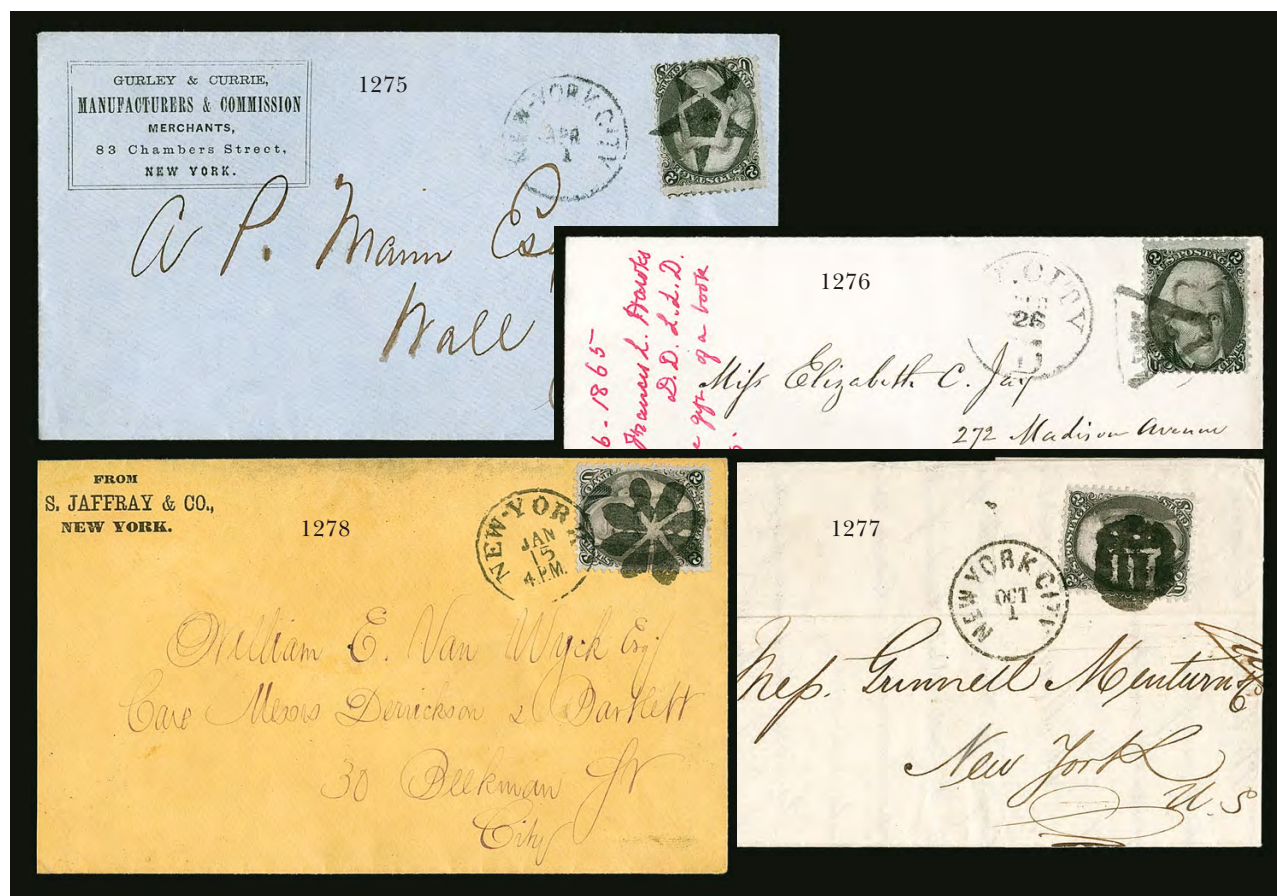 GURLEY & CURRIE,
MANUFACTURERS & COMMISSION
MERCHANTS,
83 Chambers Street,
NEW YORK.
1275
NEW-YORK CITY
APR
1
A P. Mann Esq
Wall
1276
6-1865
Francis L. Hawks
D.D. L.L.D.
of a book
CITY
26
Miss Elizabeth C. Jay
272 Madison Avenue
FROM
S. JAFFRAY & CO.,
NEW YORK.
1278
NEW-YORK
JAN
15
4 P.M.
William E. Van Wyck Esq
Care Messrs Derrickson & Bartlett
30 Beekman St
City
1277
NEW YORK CITY
OCT
1
Mess. Grinnell Minturn & Co
New York
U.S